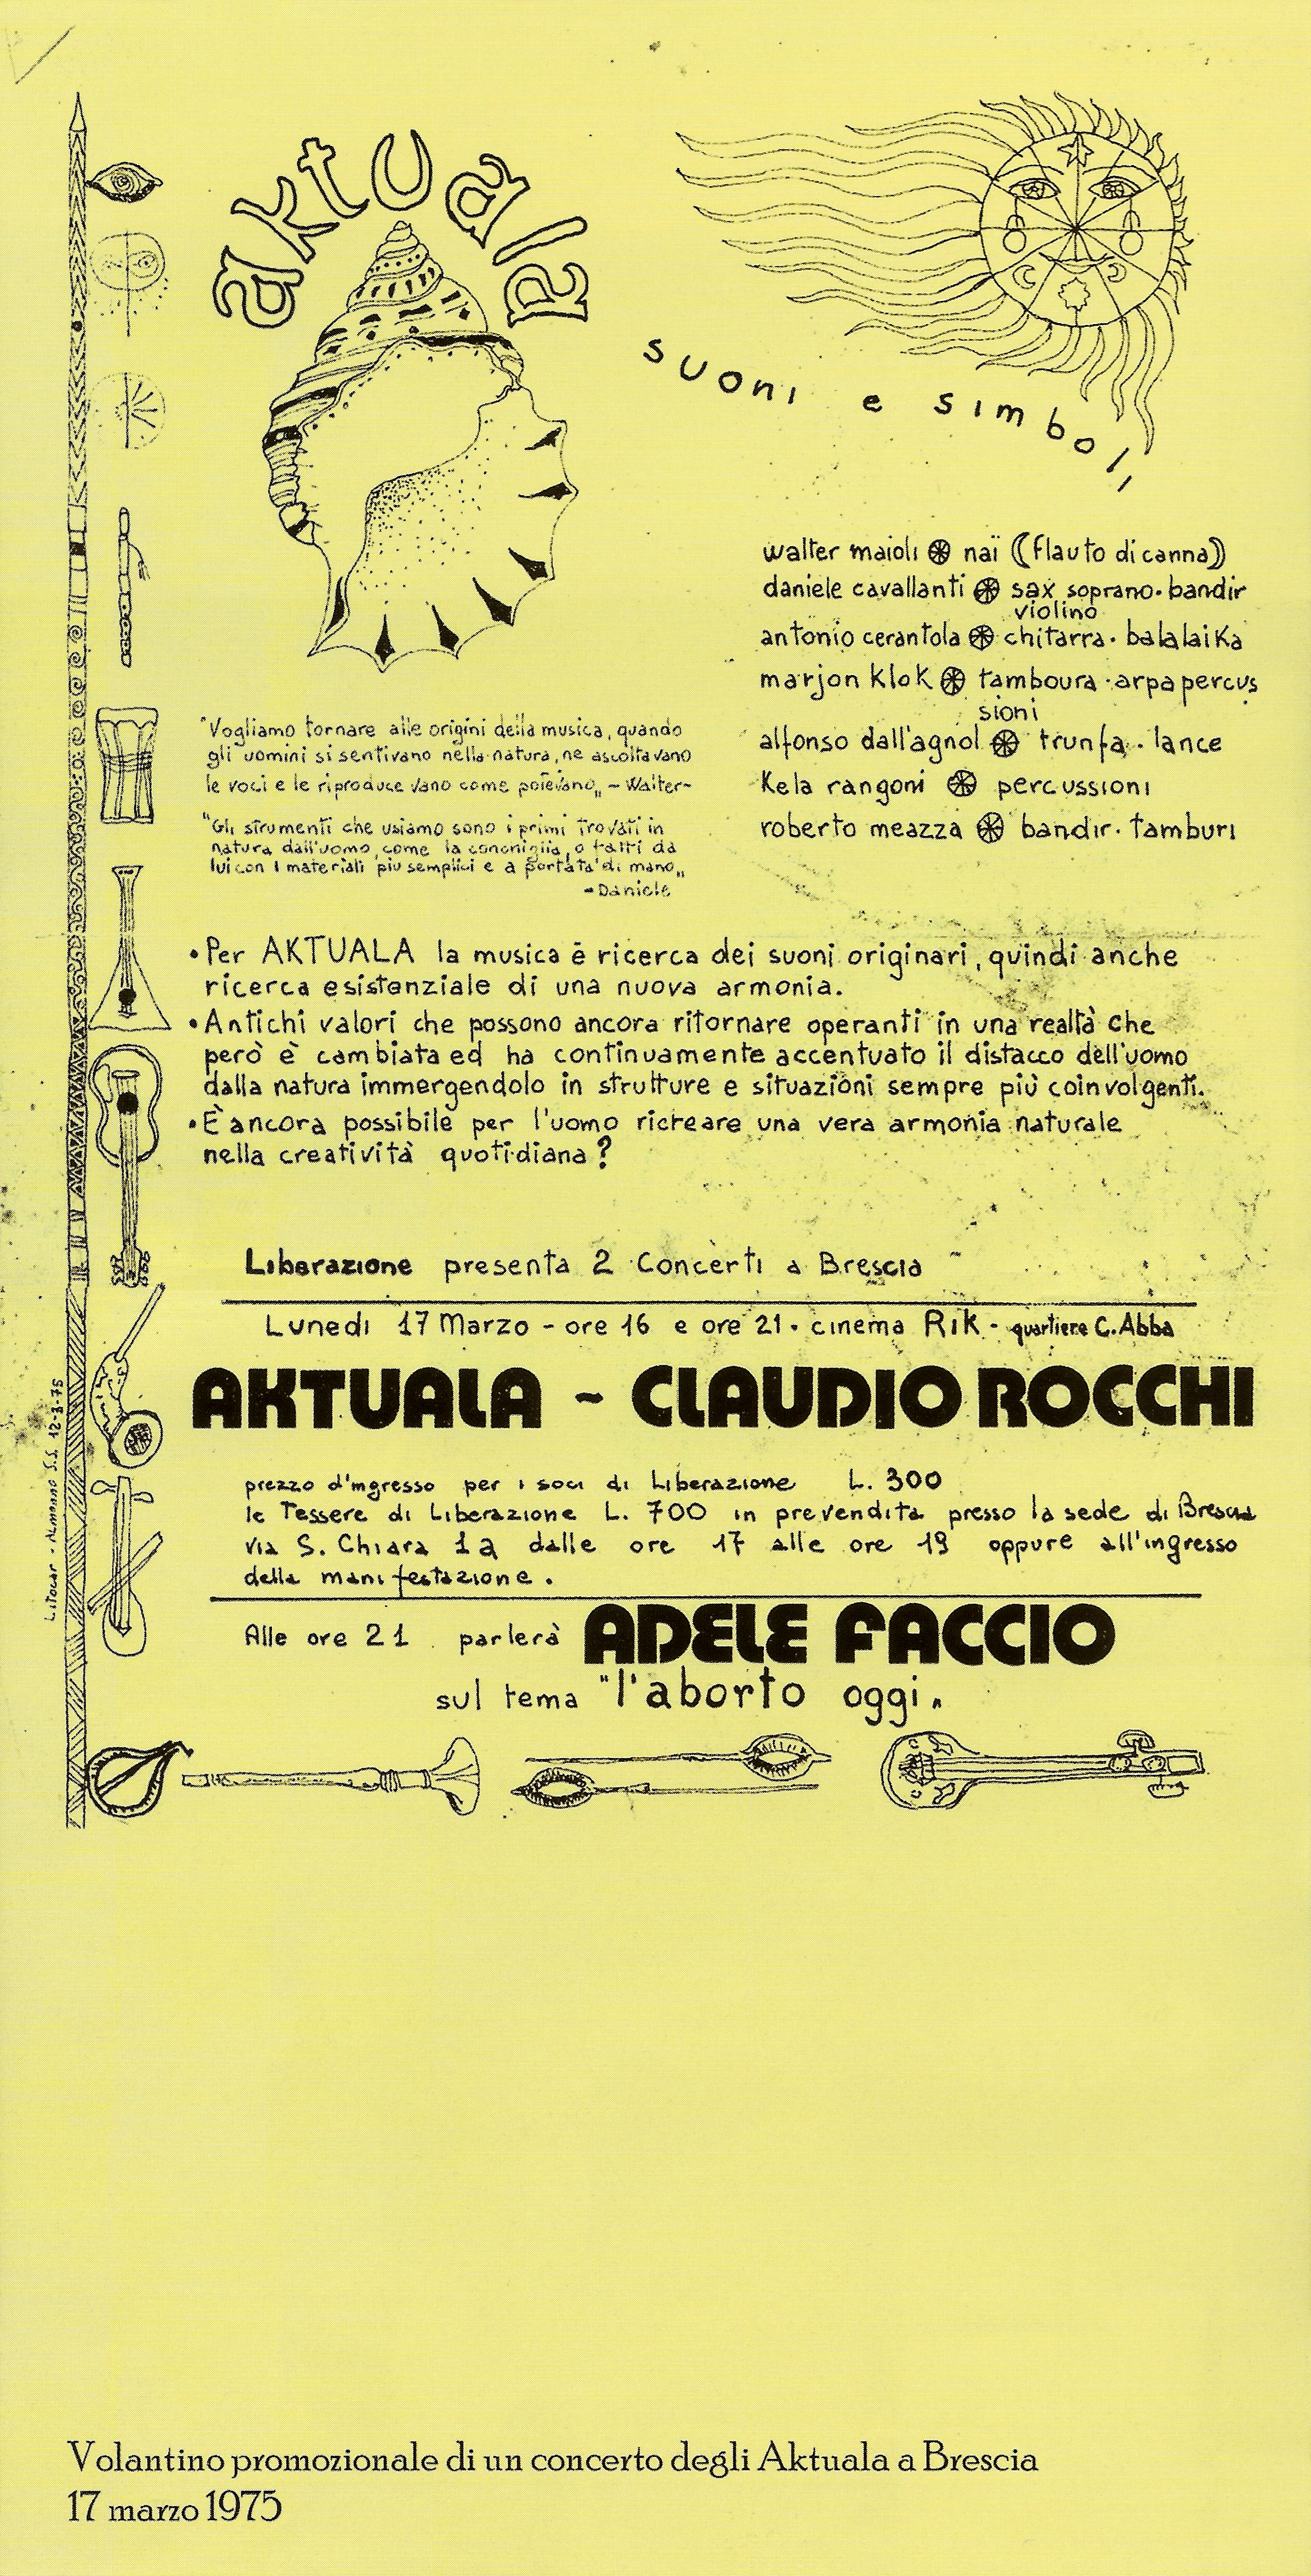 aktuala
suoni e simboli
walter maioli nai ((flauto di canna))
daniele cavallanti sax soprano · bandir
violino
antonio cerantola chitarra · balalaika
marjon klok tamboura · arpa percus
sioni
alfonso dall'agnol trunfa · lance
Kela rangoni percussioni
roberto meazza bandir · tamburi
"Vogliamo tornare alle origini della musica, quando
gli uomini si sentivano nella natura, ne ascoltavano
le voci e le riproducevano come potevano„ - Walter-
"Gli strumenti che usiamo sono i primi trovati in
natura dall'uomo, come la conchiglia, o fatti da
lui con i materiali piu semplici e a portata di mano„
- Daniele
• Per AKTUALA la musica è ricerca dei suoni originari, quindi anche
ricerca esistenziale di una nuova armonia.
• Antichi valori che possono ancora ritornare operanti in una realtà che
però è cambiata ed ha continuamente accentuato il distacco dell'uomo
dalla natura immergendolo in strutture e situazioni sempre più coinvolgenti.
• È ancora possibile per l'uomo ricreare una vera armonia naturale
nella creatività quotidiana?
Liberazione presenta 2 Concerti a Brescia
Lunedi 17 Marzo - ore 16 e ore 21 · cinema Rik - quartiere C. Abba
AKTUALA - CLAUDIO ROCCHI
prezzo d'ingresso per i soci di Liberazione L. 300
le Tessere di Liberazione L. 700 in prevendita presso la sede di Brescia
via S. Chiara 1a dalle ore 17 alle ore 19 oppure all'ingresso
della manifestazione.
Alle ore 21 parlerà ADELE FACCIO
sul tema "l'aborto oggi„
Litocar - Almenno S.S. 12-3-75
Volantino promozionale di un concerto degli Aktuala a Brescia
17 marzo 1975